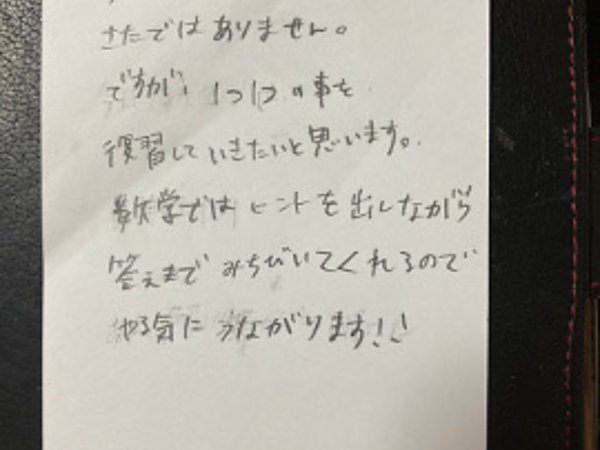 きたではありません。
ですが、1つ1つの事を
復習していきたいと思います。
数学ではヒントを出しながら
答えまでみちびいてくれるので
やる気につながります!!